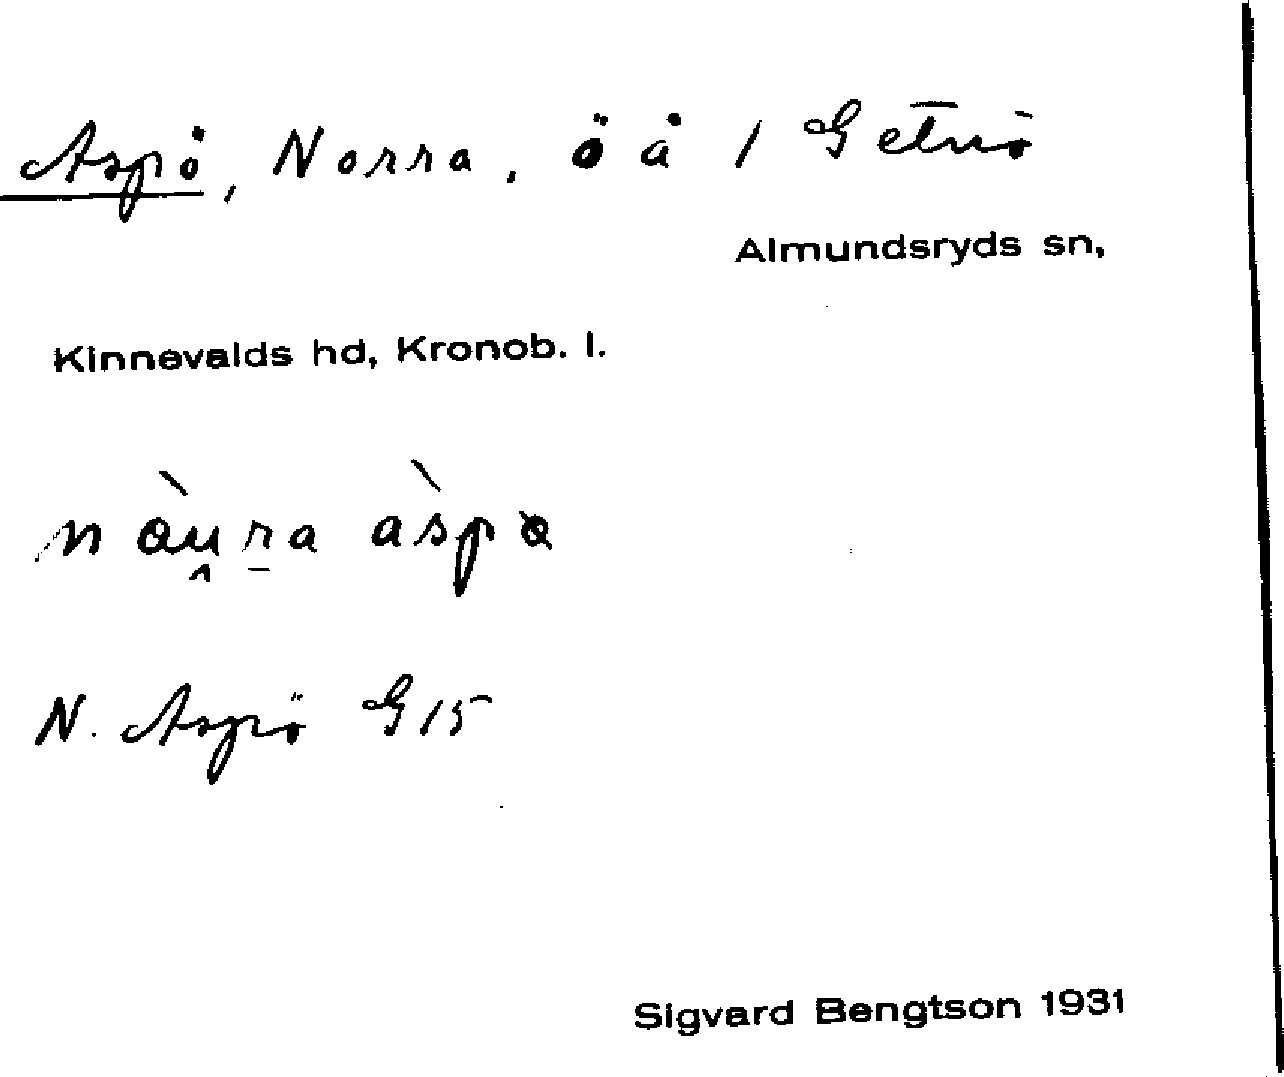 Aspö, Norra, ö å 1 Getnö
Almundsryds sn,
Kinnevalds hd, Kronob. l.
N. Aspö G 15
Sigvard Bengtson 1931